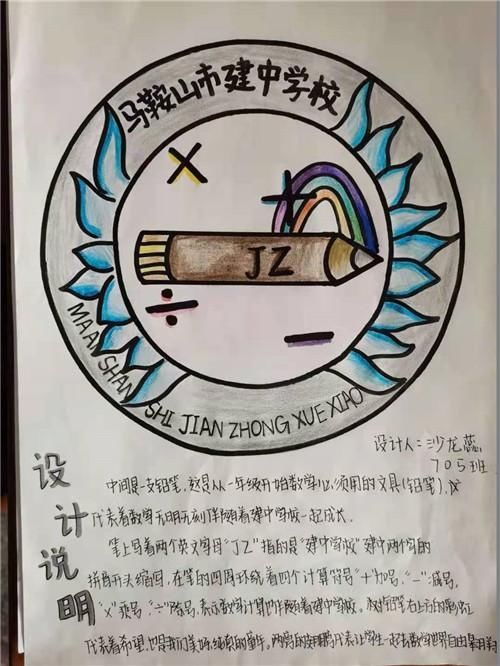 马鞍山市建中学校
×
+
JZ
÷
−
MAANSHAN SHI JIAN ZHONG XUE XIAO
设计人:沙龙蕊
705班
设计说明
中间是一支铅笔,这是从一年级开始数学必须用的文具(铅笔),
代表着数学无时无刻伴随着建中学校一起成长.
笔上写着两个英文字母“JZ”指的是“建中学校”建中两个字的
拼音开头缩写,在笔的四周环绕着四个计算符号“+”加号,“-”减号,
“×”乘号,“÷”除号,表示数学计算也伴随着建中学校。铅笔右上方的彩虹
代表着希望,也是我们美好缤纷的童年。两旁的翅膀代表让学生一起去数学世界自由翱翔